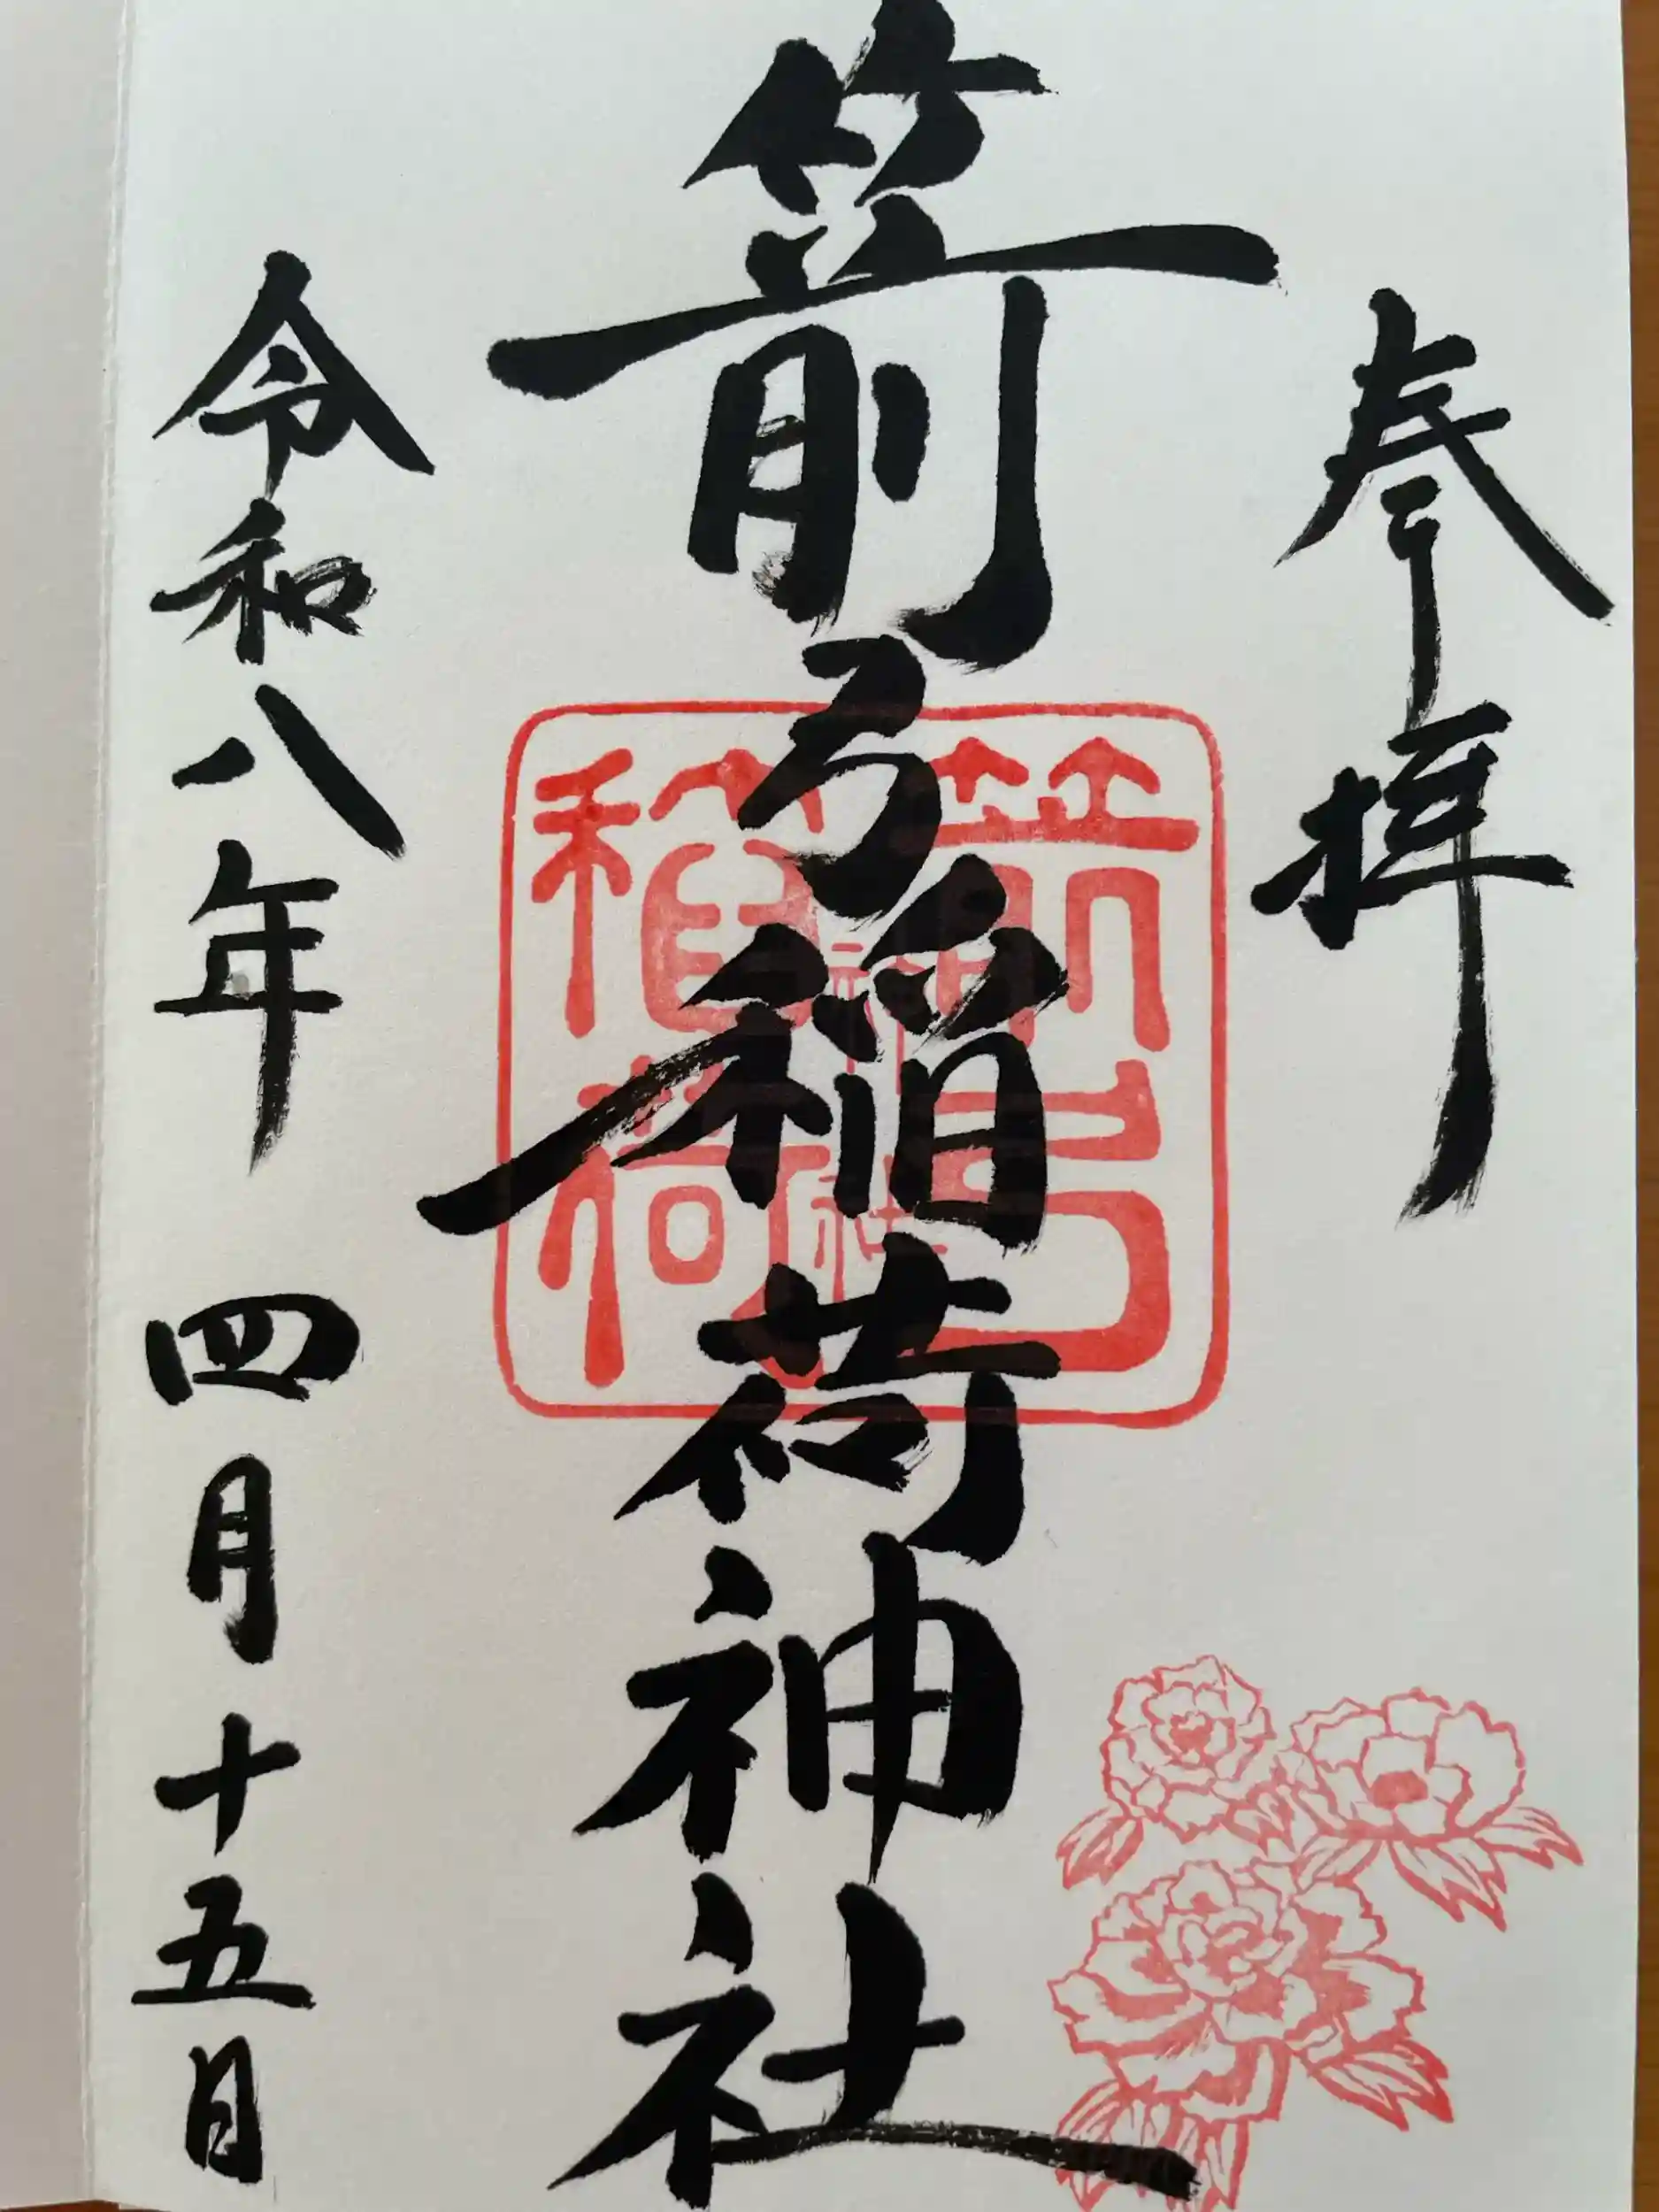 奉拝
箭弓稲荷神社
箭弓稲荷神社
令和八年 四月十五日